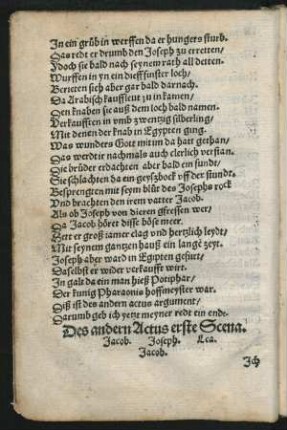 In ein grůb in werffen da er hungers sturb.
Das redt er drumb den Joseph zu erretten/
Idoch sie bald nach seynem rath all detten.
Wurfften in yn ein dieff finster loch/
Berieten sich aber gar bald darnach.
Da Arabisch kauffleut zu in kamen/
Den knaben sie auß dem loch bald namen.
Verkaufften in vmb zwentzig silberling/
Mit denen der knab in Egypten ging.
Was wunders Gott mit im da hatt gethan/
Das werdt ir nachmals auch clerlich verstan.
Die brüder erdachten aber bald ein fundt/
Sie schlachten da ein geyszbock vff der stundt.
Besprengten mit seym blůt des Josephs rock
Vnd brachten den irem vatter Jacob.
Als ob Joseph von dieren gfressen wer/
Da Jacob höret disse böse meer.
Hett er groß iamer clag vnd hertzlich leydt/
Mit seynem gantzen hauß ein lange zeyt.
Joseph aber ward in Egipten gefürt/
Daselbst er wider verkaufft wirt.
In galt da ein man hieß Potiphar/
Der kunig Pharaonis hoffmeyster war.
Diß ist des andern actus argument/
Darumb geb ich yetzt meyner redt ein endt.
Des andern Actus erste Scena.
Jacob. Joseph. Lea.
Jacob.
Ich